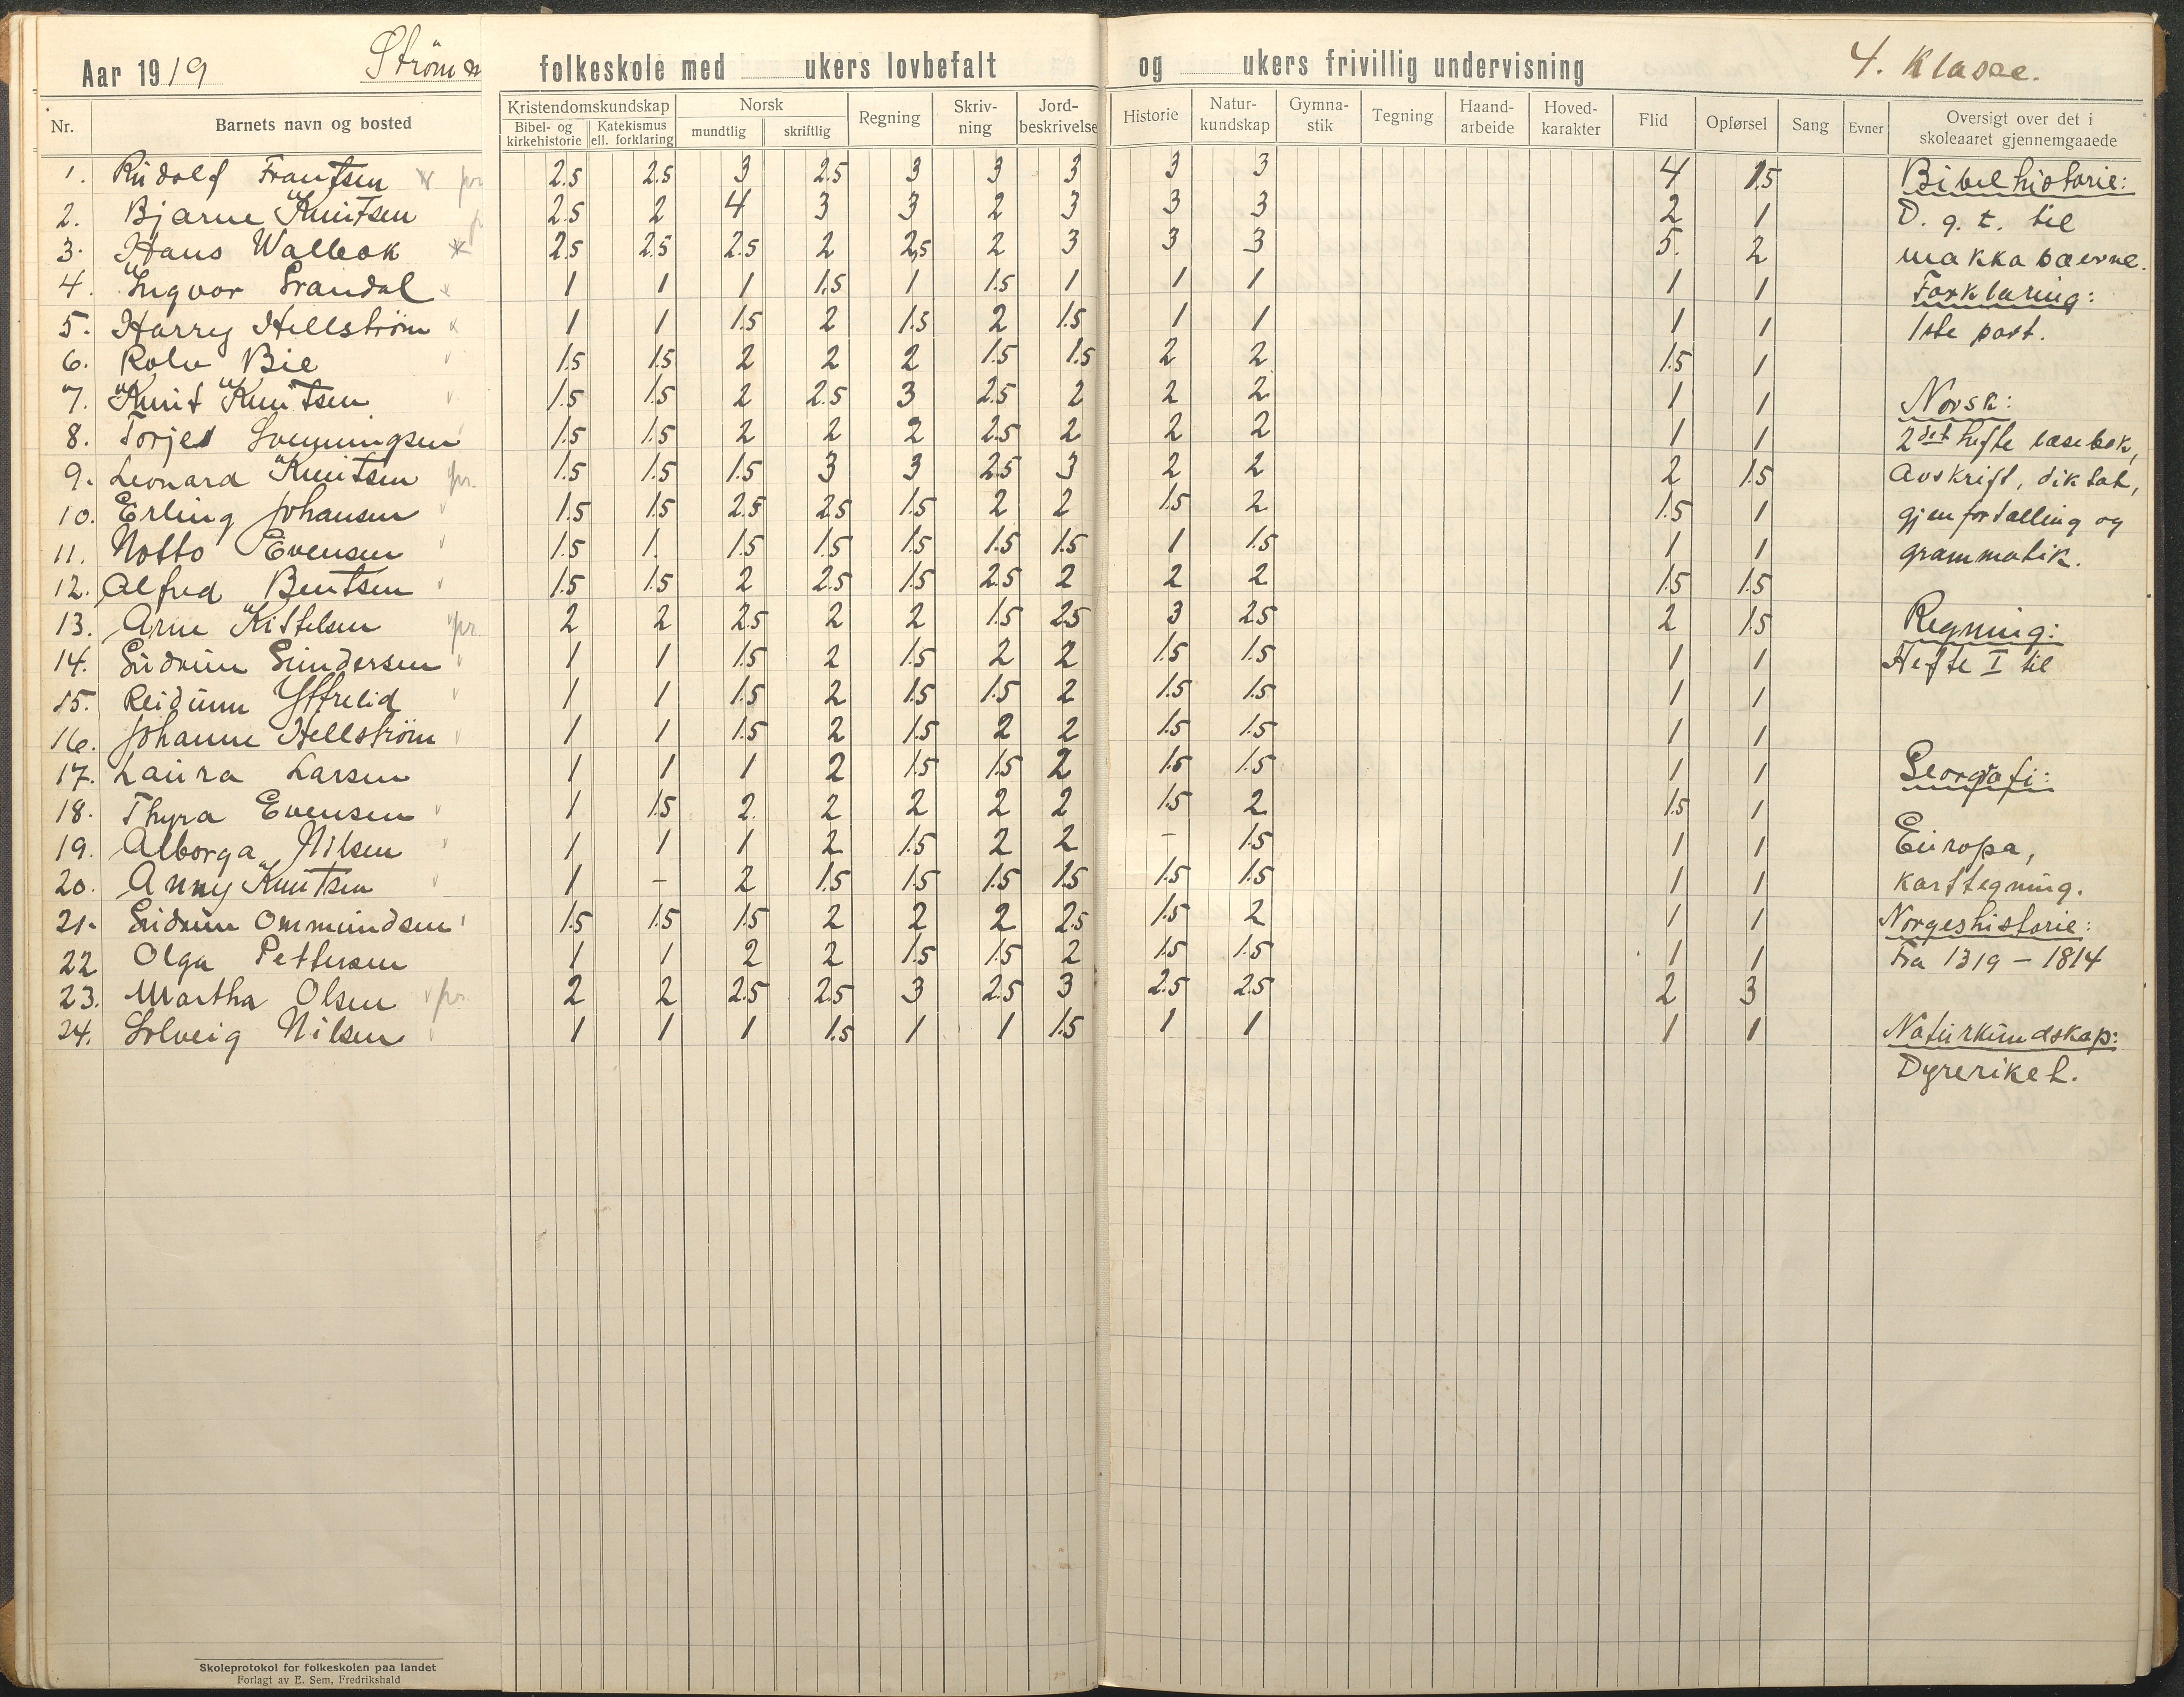 Aar 1919 Strømm folkeskole med ukers lovbefalt og ukers frivillig undervisning 4. Klasse.
Nr. Barnets navn og bosted Kristendomskundskap Bibel- og kirkehistorie Katekismus ell. forklaring Norsk mundtlig skriftlig Regning Skriv-ning Jord-beskrivelse Historie Natur-kundskap Gymna-stik Tegning Haand-arbeide Hoved-karakter Flid Opførsel Sang Evner Oversigt over det i skoleaaret gjennemgaaede
1. Rudolf Frantsen 2.5 2.5 3 2.5 3 3 3 3 3 4 1.5 Bibelhistorie:
2. Bjarne Knutsen 2.5 2 4 3 3 2 3 3 3 2 1 D. g. t. til
3. Hans Walleok 2.5 2.5 2.5 2 2.5 2 3 3 3 5. 2 makkabæerne.
4. Ingvar Grandal 1 1 1 1.5 1 1.5 1 1 1 1 1 Forklaring:
5. Harry Hellstrøm 1 1 1.5 2 1.5 2 1.5 1 1 1 1 1ste part.
6. Rolv Bie 1.5 1.5 2 2 2 1.5 1.5 2 2 1.5 1
7. Knut Knutsen 1.5 1.5 2 2.5 3 2.5 2 2 2 1 1 Norsk:
8. Torjes Svenningsen 1.5 1.5 2 2 2 2.5 2 2 2 1 1 2det hefte læsebok,
9. Leonard Knutsen pr. 1.5 1.5 1.5 3 3 2.5 3 2 2 2 1.5 Avskrift, diktat,
10. Erling Johansen 1.5 1.5 2.5 2.5 1.5 2 2 1.5 2 1.5 1 gjenfortælling og
11. Notto Evensen 1.5 1. 1.5 1.5 1.5 1.5 1.5 1 1.5 1 1 grammatik.
12. Alfred Bentsen 1.5 1.5 2 2.5 1.5 2.5 2 2 2 1.5 1.5
13. Arne Kittelsen pr. 2 2 2.5 2 2 1.5 2.5 3 2.5 2 1.5 Regning:
14. Gudrun Gundersen 1 1 1.5 2 1.5 2 2 1.5 1.5 1 1 Hefte I til
15. Reidunn Yttrelid 1 1 1.5 2 1.5 1.5 2 1.5 1.5 1 1
16. Johanne Hellstrøm 1 1 1.5 2 1.5 2 2 1.5 1.5 1 1
17. Laura Larsen 1 1 1 2 1.5 1.5 2 1.5 1.5 1 1 Georgrafi:
18. Thyra Evensen 1 1.5 2. 2 2 2 2 1.5 2 1.5 1
19. Alborga Nilsen 1 1 1 2 1.5 2 2 - 1.5 1 1 Europa,
20. Anny Knutsen 1 - 2 1.5 1.5 1.5 1.5 1.5 1.5 1 1 karttegning.
21. Gudrun Ommundsen 1.5 1.5 1.5 2 2 2 2.5 1.5 2 1 1 Norgeshistorie:
22 Olga Pettersen 1 1 2 2 1.5 1.5 2 1.5 1.5 1 1 Fra 1319 - 1814
23. Martha Olsen pr. 2 2 2.5 2.5 3 2.5 3 2.5 2.5 2 3
24. Solveig Nilsen 1 1 1 1.5 1 1 1.5 1 1 1 1 Naturkundskap:
Dyreriket.
Skoleprotokol for folkeskolen paa landet
Forlagt av E. Sem, Fredrikshald